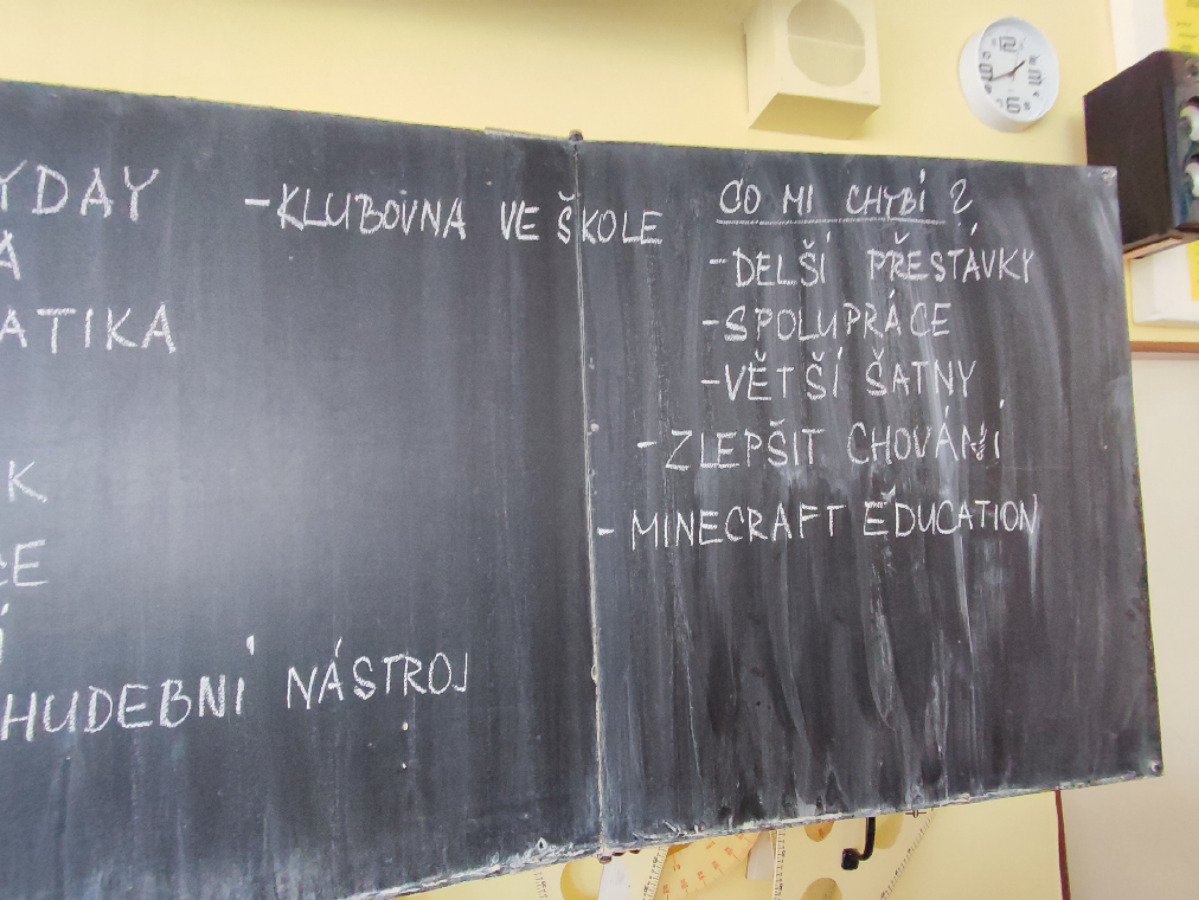 YDAY
A
ATIKA
K
CE
Í
HUDEBNÍ NÁSTROJ
-KLUBOVNA VE ŠKOLE
CO MI CHYBÍ ?
-DELŠÍ PŘESTÁVKY
-SPOLUPRÁCE
-VĚTŠÍ ŠATNY
- ZLEPŠIT CHOVÁNÍ
- MINECRAFT EDUCATION